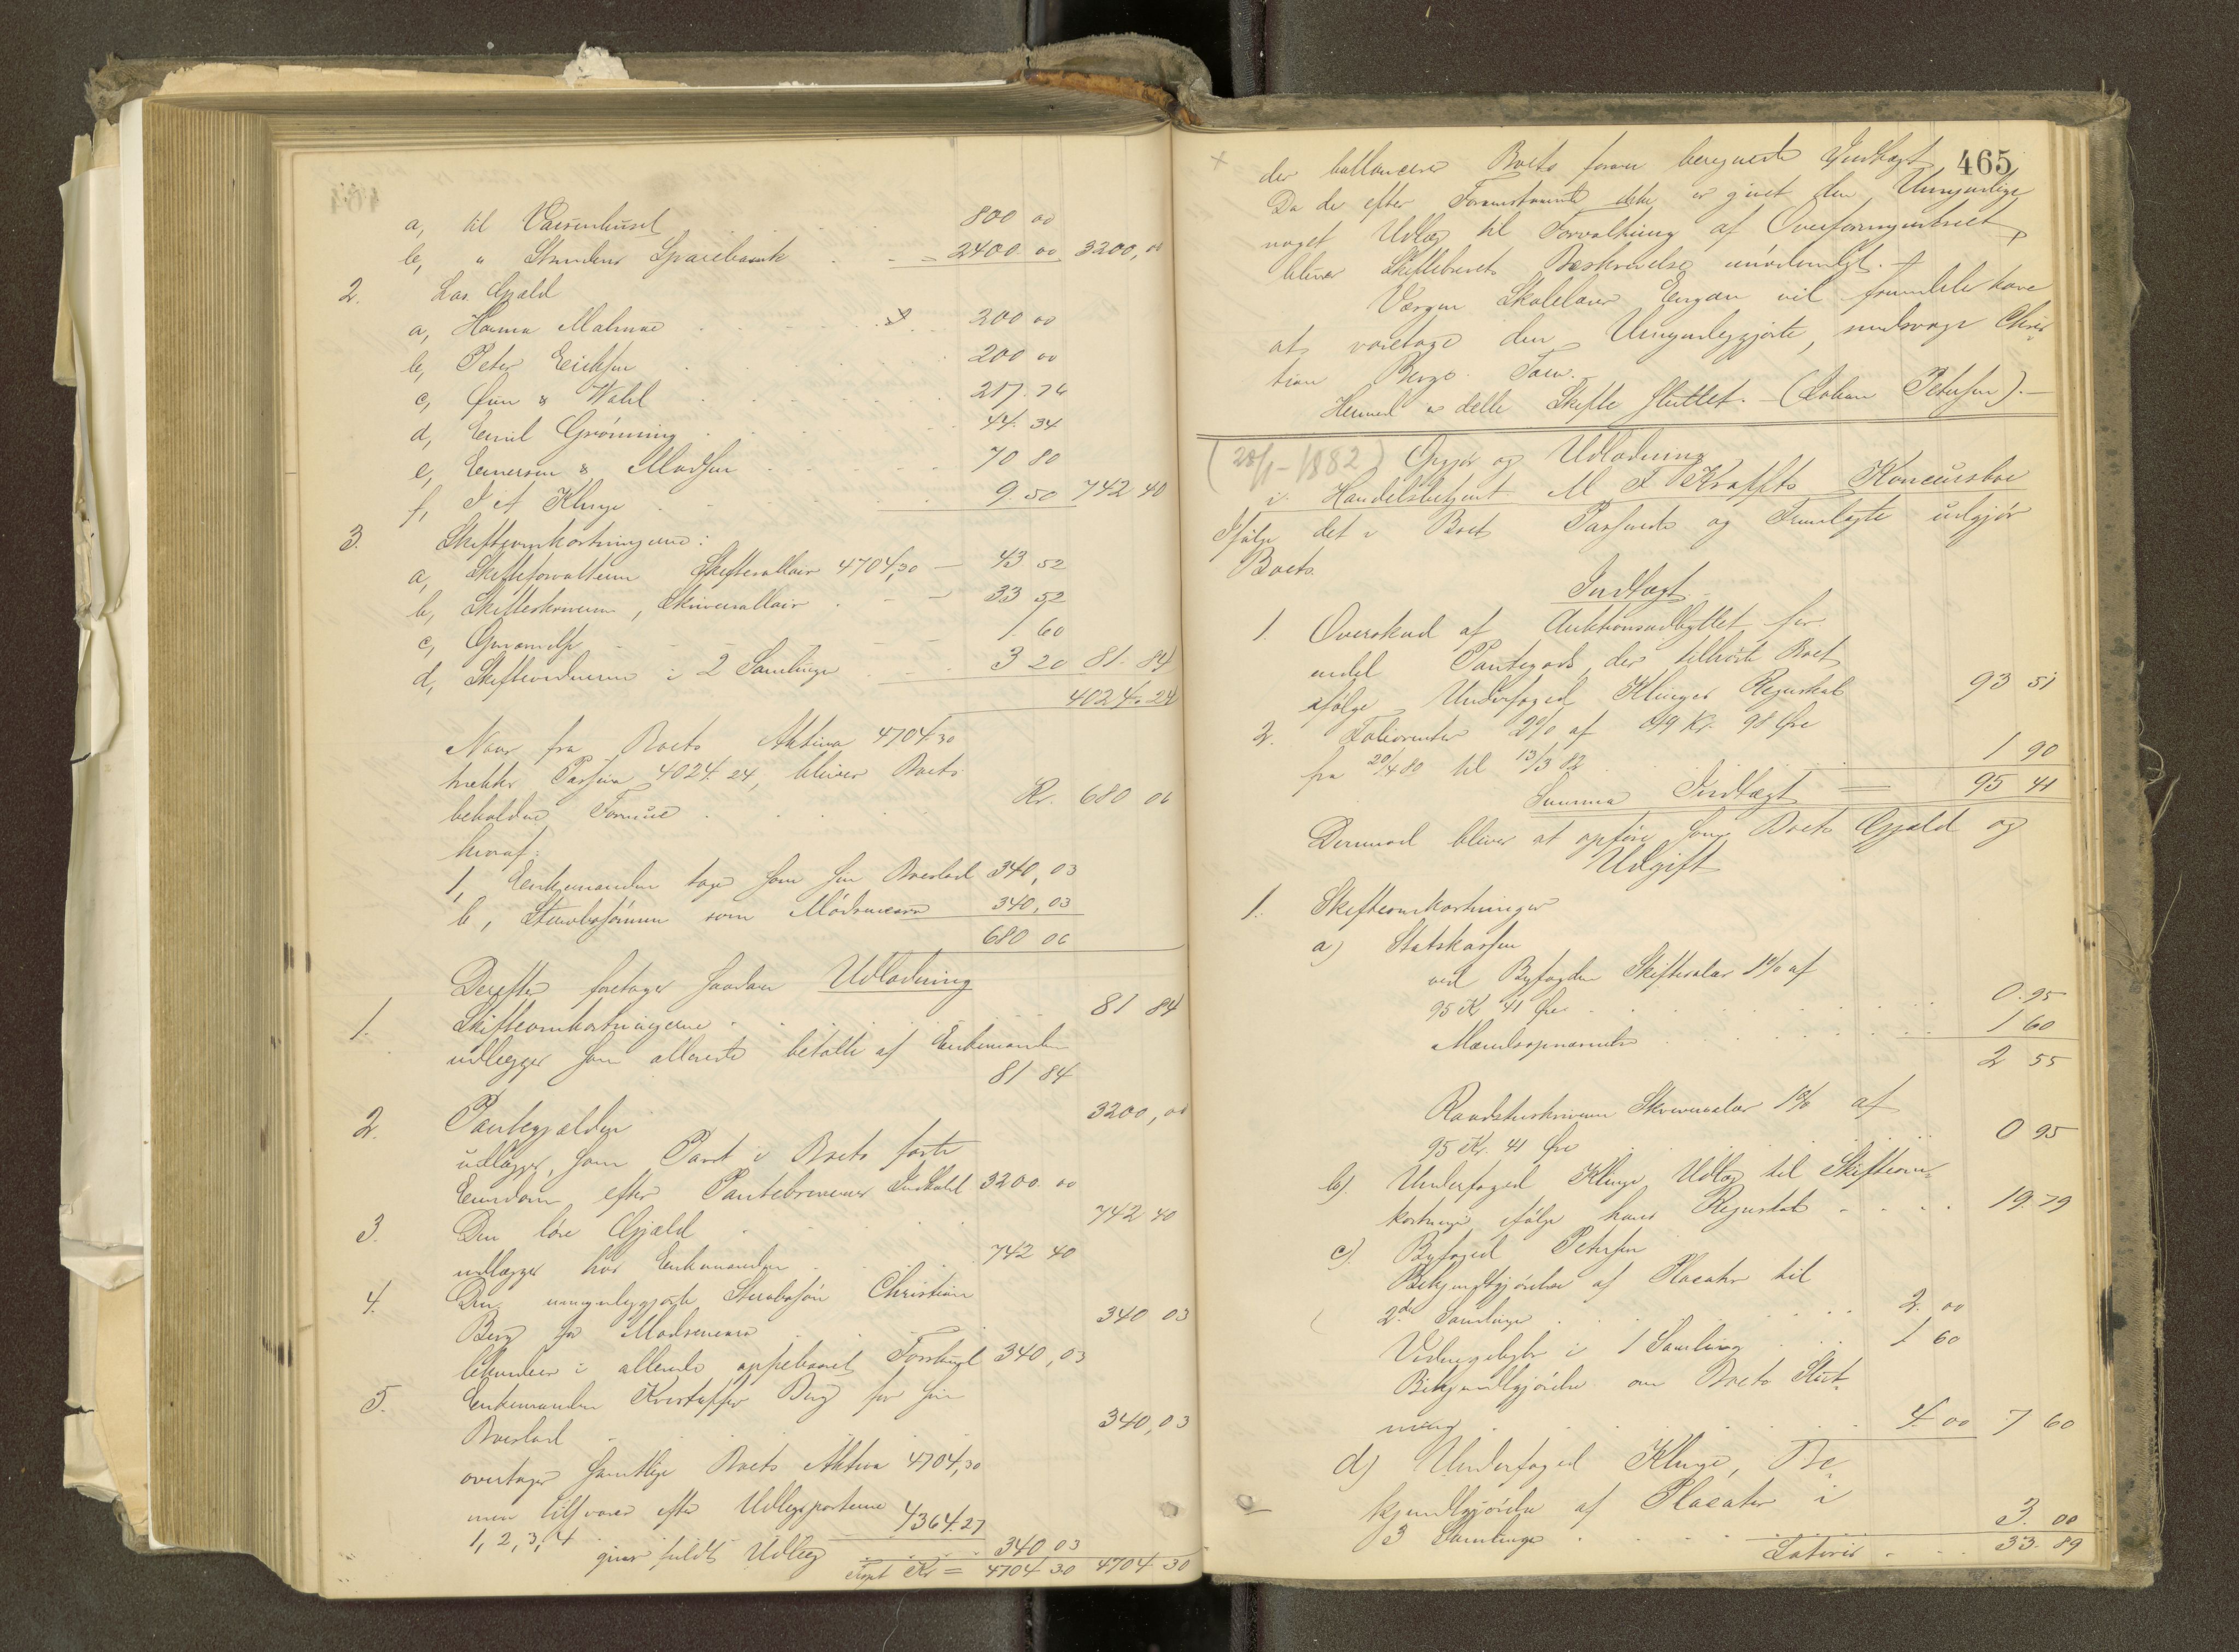 a, til Vaisenhuset 800 00
b, " Strindens Sparebank 2400 00 3200,00
2. Løs Gjæld
a, Hanna Malmøe 200 00
b, Peter Erichsen 200 00
c, Øien & Wahl 217.76
d, Emil Grønning 44. 34
e, Evensen & Madsen 70 80
f, Kluge 9.50 742 40
3. Skifteomkostningerne:
a, Skifteforvalteren Skiftesallair 4704,30 — 43 52
b, Skifteskriveren, Skriversallair 33 52
c, 1. 60
d, Skiftevidnerne i 2 Samlinger 3 20 81. 84
4024.24
Naar fra Boets Aktiva 4704.30
trækkes Passiva 4024.24, bliver Boets
beholdne Formue Kr. 680 06
hvoraf:
1, Enkemanden tager som sin Boeslod 340,03
b, Stervbosønnen som Mødrenearv 340,03
680 06
Derefter foretages saadan Udlodning
1. Skifteomkostningerne 81 84
udlægges som allerede betalte af Enkemanden
81 84
2. Pantegjælden 3200,00
udlægges, som Pant i Boets faste
Eiendom, efter Pantebrevenes Indhold 3200.00
3. Den løse Gjæld 742 40
udlægges hos Enkemanden 742 40
4. Den umyndiggjorte Stervbosøn Christian
Berg for Mødrenearv 340 03
bekommer i allerede oppebaaret Forskud 340,03
5. Enkemanden Kristoffer Berg for sin
Boeslod 340,03
overtager samtlige Boets Aktiva 4704,30
men tilsvarer efter Udlægsposterne
1, 2, 3, 4 4364.27
giver fuldt Udlæg 340 03
Kr = 4704 30 4704 30
465
der ballancerer Boets foran beregnede Indtægt
Da der efter Foranstaaende ikke er givet den Umyndige
noget Udlæg til Forvaltning af Overformynderiet,
bliver Skiftebrevets Beskrivelse unødvendigt.
Værgen Skolelærer Engan vil fremdeles have
at varetage den Umyndiggjorte, sindssvage Chris-
tian Bergs Tarv.
Hermed er dette Skifte sluttet. — (Johan Petersen). —
(28/1 - 1882) Opgjør og Udlodning
i Handelsbetjent M F Kraffts Koncursbo
Ifølge det i Boet Passerede og Fremlagte udgjør
Boets
Indtægt
1. Overskud af Auktionsudbyttet for
endel Pantegods, der tilhørte Boet
ifølge Underfoged Kluges Regnskab 93 51
2. Foliorenter 2% af 49 Kr. 98 Øre
fra 20/4 80 til 13/3 82 1 90
Summa Indtægt = 95 41
Derimod bliver at opføre som Boets Gjæld og
Udgift
1. Skifteomkostninger
a) Statskassen
ved Byfogden Skiftesalær 1% af
95 Kr 41 Øre 0.95
1 60
2 55
Raadstueskriveren Skriversalær 1% af
95 Kr. 41 Øre 0 95
b). Underfoged Kluge, Udlæg til Skifteom-
kostninger ifølge hans Regnskab 19.79
c). Byfoged Petersen
Bekjendtgjørelse af Placater til
2de Samlinger 2. 00
Vidnegebyhr i 1 Samling 1 60
Bekjendtgjørelse om Boets Slut-
ning 4.00 7 60
d) Underfoged Kluge, Be-
kjendtgjørelse af Placater i
3 Samlinger 3. 00
Lateris 33. 89